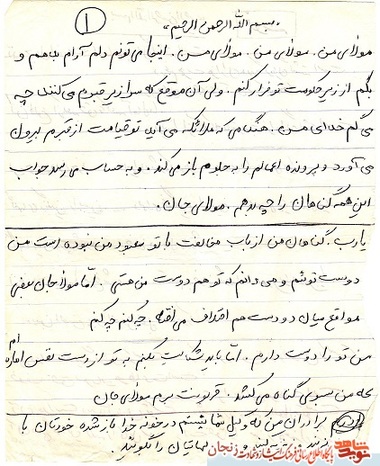 ۱
بسم الله الرحمن الرحیم
مولای من. مولای من. مولای من. اینجا می‌تونم دلم آرام بدهم و
بگم از زیر حکومت تو فرار کنم. ولی آن موقع که سرازیر قبرم می‌کنند چه
می‌گم خدای من. هنگامی که ملائکه می‌آیند تو قیامت از قبرم بیرون
می‌آورد و پرونده اعمالم را به جلوم باز می‌کند. و به حساب می‌رسد جواب
این همه گناهان را چه بدهم. مولای جان.
یا رب. گناهان من از باب مخالفت با تو معبود من نبوده است من
دوست توئم و می‌دانم که تو هم دوست من هستی. امّا مولا جان بعضی
مواقع میان دو دست هم اختلاف می‌افتد. چه کنم چه کنم
من تو را دوست دارم. امّا باید شکایت بکنم به تو از دست نفس اماره
که من بسوی گناه می‌کشد. قربونت برم مولای جان
برادران من که وکیل شما نیستم در خونه خدا باز شده خودتان با
پایگاه اطلاع‌رسانی فرهنگ ایثار و شهادت زنجان
نوید شاهد